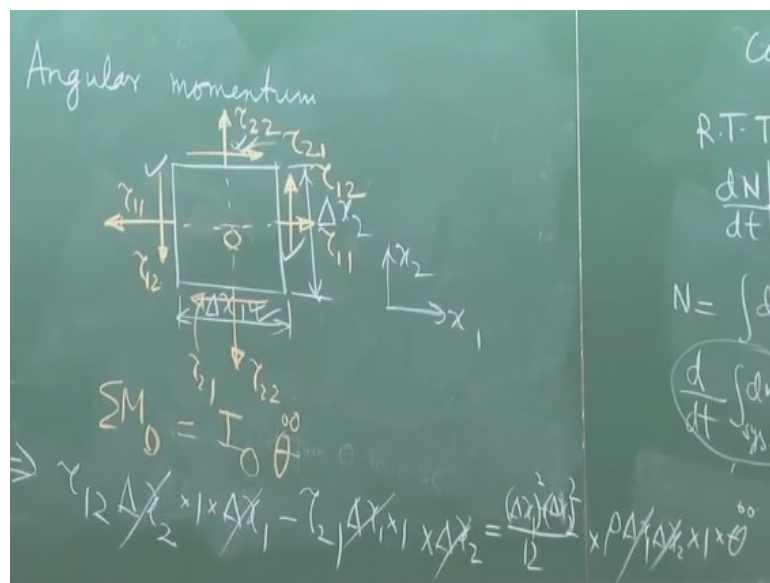 Angular momentum
τ22
τ21
τ11
τ12
Δx2
τ11
τ12
O
Δx1
τ21
τ22
x2
x1
ΣM_O = I_O θ̈
⇒ τ12 Δx2 × 1 × Δx1 − τ21 Δx1 × 1 × Δx2 = ((Δx1)² + (Δx2)²)/12 × ρΔx1Δx2 × 1 × θ̈
R.T.T
dN
dt
N = ∫
d/dt ∫sys